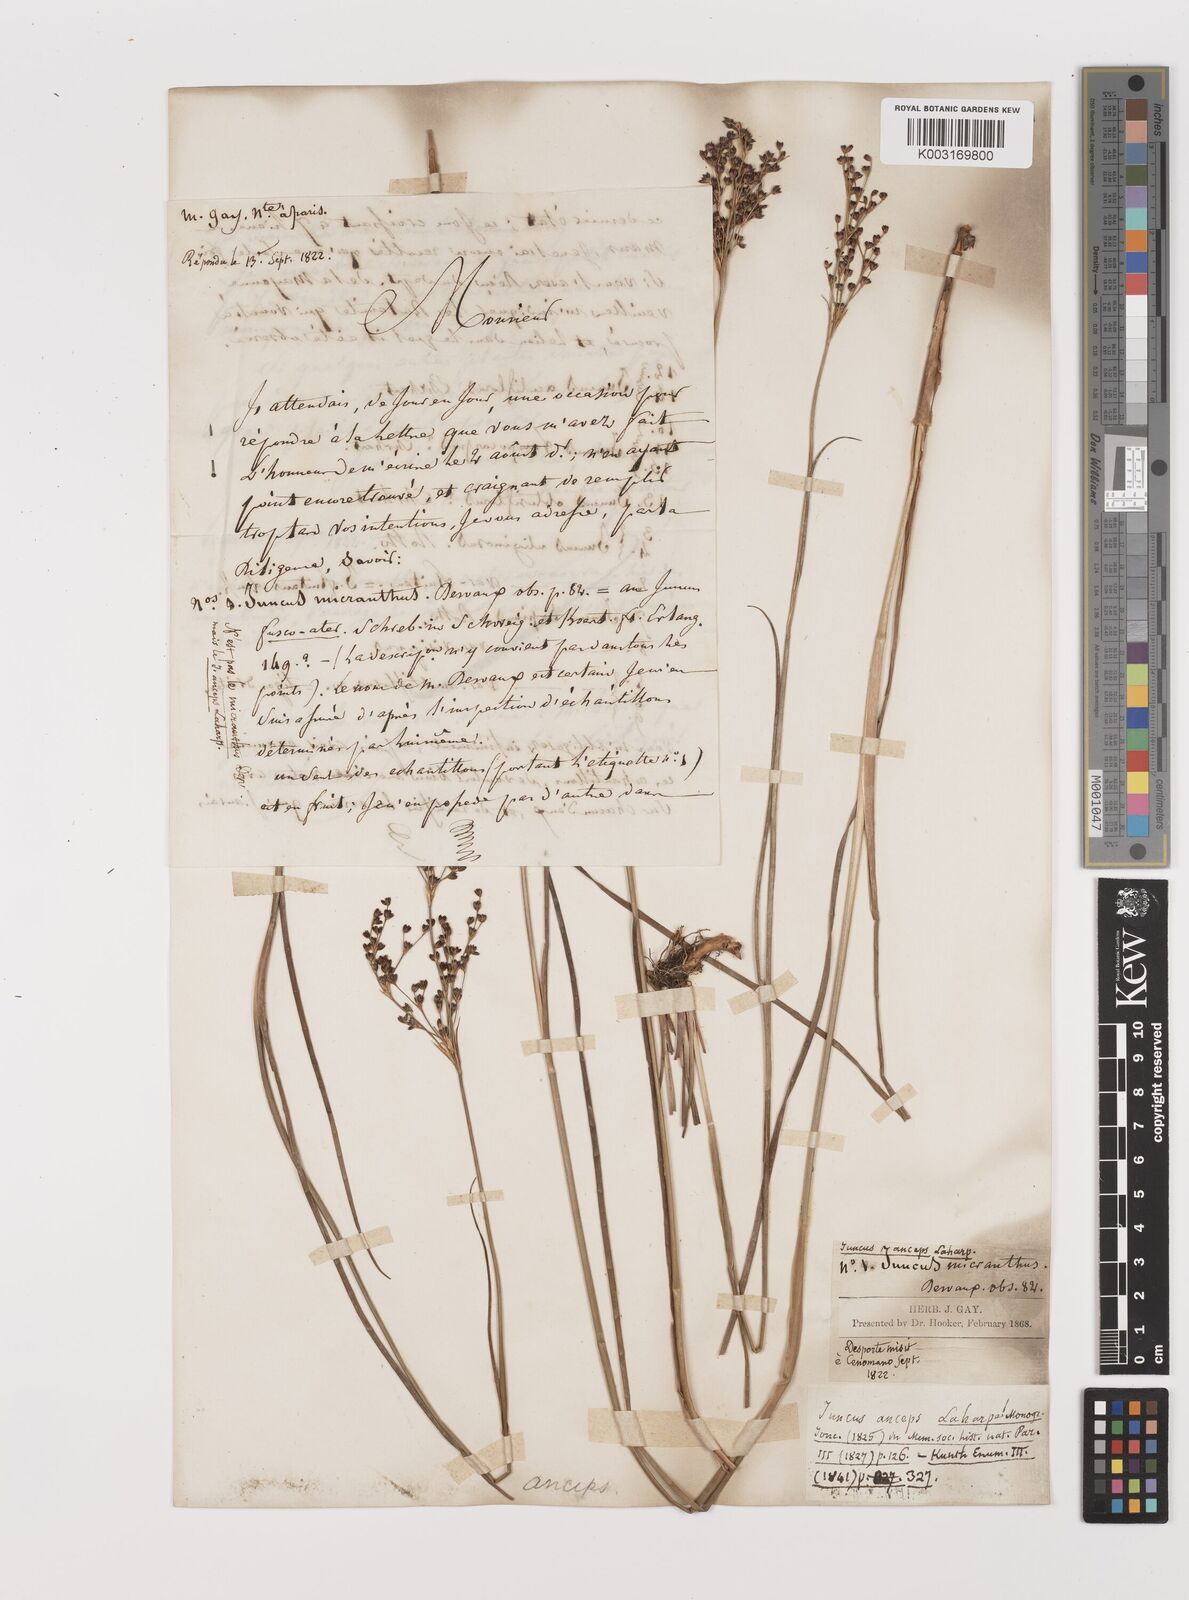 ROYAL BOTANIC GARDENS KEW
K003169800
M. Gay. Nte. à paris.
Répondu le 13 Sept. 1822.
Monsieur
J'attendais, de jour en jour, une occasion pour
répondre à la lettre que vous m'avez fait
l'honneur de m'écrire le 2 août dr; n'en ayant
point encore trouvé, et craignant de remplir
trop tard vos intentions, je vous adresse, par la
Diligence, savoir:
Nos. Juncus micranthus. Desvaux obs. p. 82. = an Juncus
fusco-ater. Schreb. in Schweig. et Koert. fl. Erlang.
149.? - (La description n'y convient pas dans tous les
points). Le nom de M. Desvaux est certain, j'en
suis assuré d'après l'inspection d'échantillons
déterminés par lui même.
un seul des echantillons (portant l'etiquette no. 1)
est en fruit; je n'en possede pas d'autre dans
N'est pas le micranthus
mais le J. anceps Laharp.
Juncus J anceps Laharp.
No. 1. Juncus micranthus.
Desvaux. obs. 82.
HERB. J. GAY.
Presented by Dr. Hooker, February 1868.
Desporte misit
è Cenomano Sept.
1822.
Juncus anceps Laharpe! Monogr.
Jonc. (1825) in Mem. soc. hist. nat. Par.
III (1827) p. 126. - Kunth Enum. III.
(1841) p. 327. 327.
anceps.
inches
cm
Don Williams
M001047
Royal Botanic Gardens
Kew
0 1 2 3 4 5 6 7 8 9 10
cm
copyright reserved